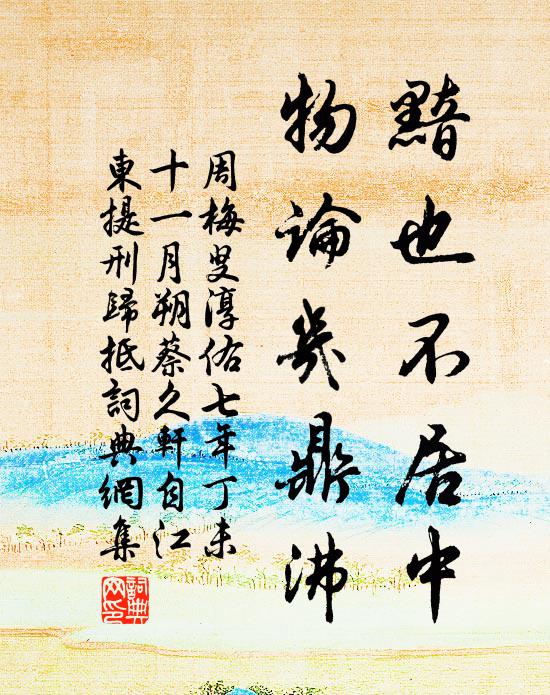 黯也不居中
物論幾鼎沸
周梅叟淳佑七年丁未
十一月朔蔡久軒自江
東提刑歸抵詞典網集
詞典網印